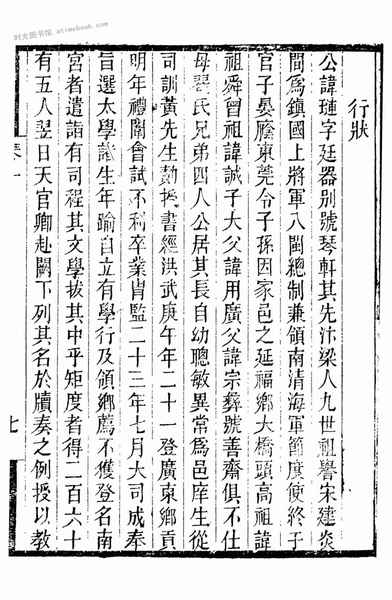 时光图书馆 after4book.com
行狀
公諱璉字廷器別號琴軒其先汴梁人九世祖譽宋建炎
間爲鎮國上將軍八閩總制兼領南清海軍節度使終于
官子晏廕東莞令子孫因家邑之延福鄉大橋頭高祖諱
祖舜曾祖諱誠子大父諱用廣父諱宗彜號善齋俱不仕
母琴氏兄弟四人公居其長自幼聰敏異常爲邑庠生從
司訓黃先生勬授書經洪武庚午年二十一登廣東鄉貢
明年禮闈會試不利卒業胄監二十三年七月大司成奉
旨選太學諸生年踰自立有學行及領鄉薦不獲登名南
宮者遣詣有司程其文學拔其中乎矩度者得二百六十
有五人翌日天官卿赴闕下列其名於牘奏之例授以教
卷一
七